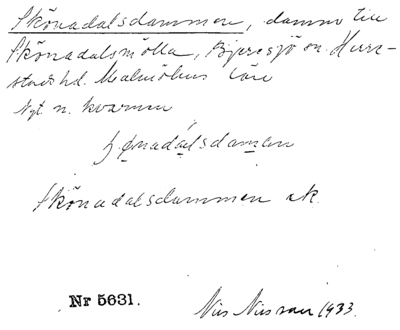 Skönadalsdammen, damm till
Skönadalsmölla, Bjeresjö sn. Herre-
stads hd. Malmöhus län
Nyt. n. kvarnen
Skönadalsdammen ek.
Nr 5631.
Nils Nilsson 1933.